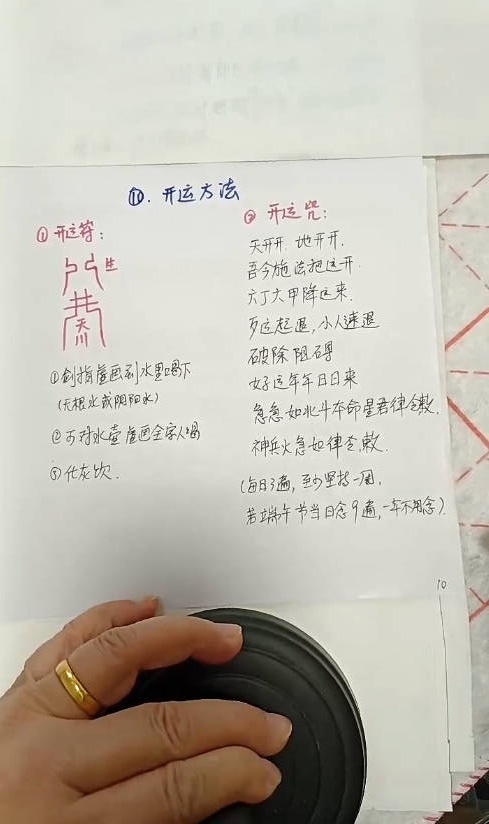 ⑩. 开运方法
① 开运符：
生
①剑指虚画到水里喝下
（无根水或阴阳水）
②可对水壶虚画全家人喝
③化灰饮.
② 开运咒：
天开开. 地开开.
吾今施法把运开.
六丁六甲降运来.
歹运起退, 小人速退
破除阻碍
好运年年日日来
急急如北斗本命星君律令敕.
神兵火急如律令敕.
(每日3遍, 至少坚持一周,
若端午节当日念9遍, 一年不用念).
10